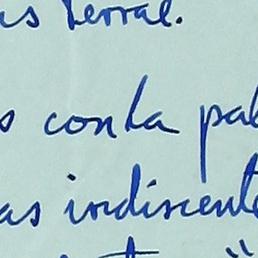 as terral.
s conta pal
as indiscente